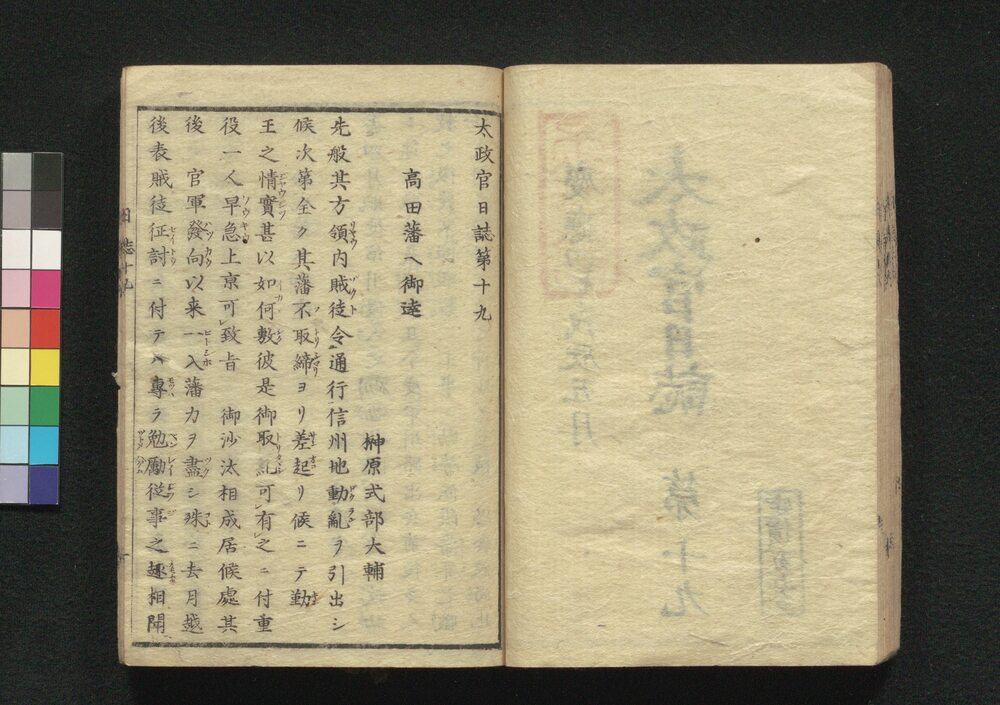 太政官日誌第十九
高田藩ヘ御達
榊原式部大輔
先般其方領内賊徒令通行信州地動亂ヲ引出シ
候次第全ク其藩不取締ヨリ差起リ候ニテ勤
王之情實甚以如何敷彼是御取糺可有之ニ付重
役一人早急上京可致旨　御沙汰相成居候處其
後　官軍發向以来一入藩力ヲ盡シ殊ニ去月越
後表賊徒征討ニ付テハ專ラ勉勵従事之趣相聞
日誌十九